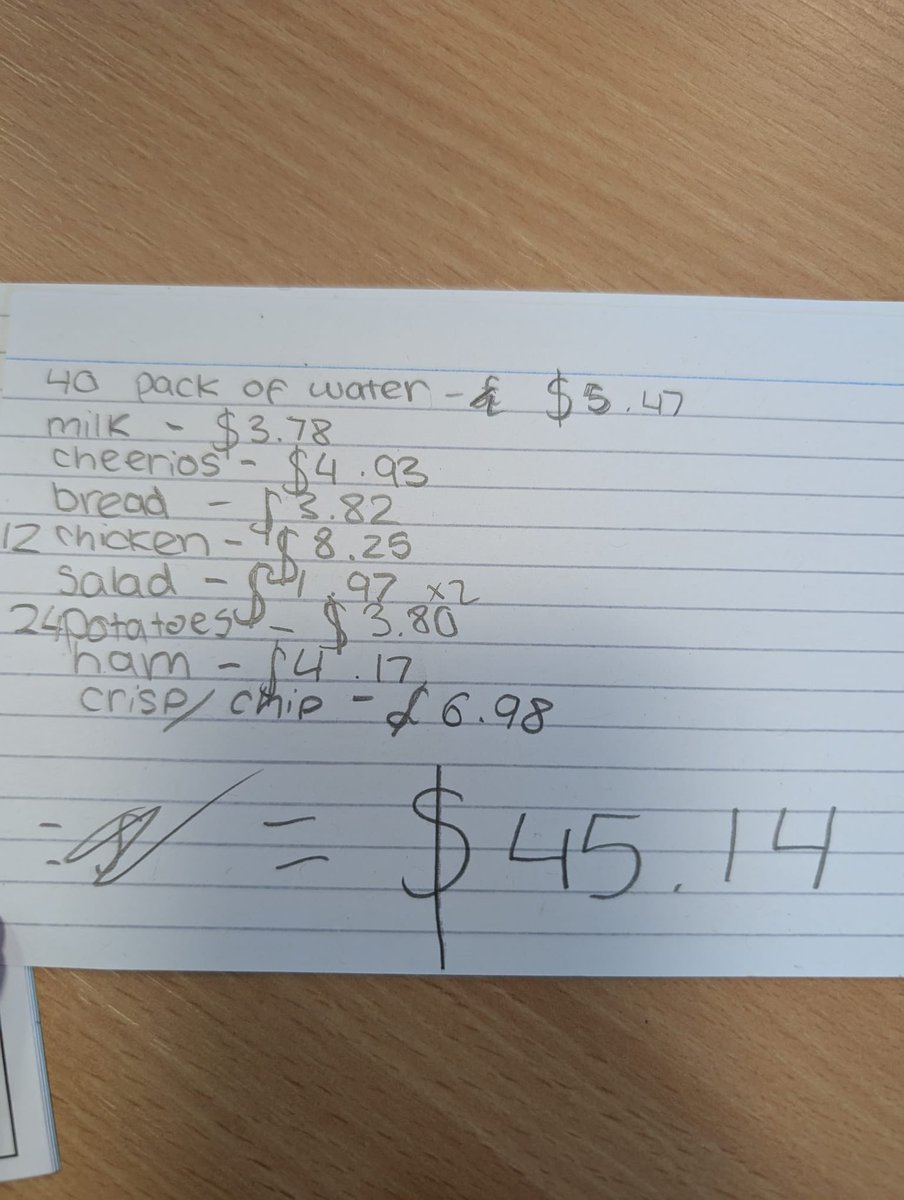 40 pack of water - $5.47
milk - $3.78
cheerios - $4.93
bread - $3.82
12 chicken - $8.25
salad - $1.97 x2
24 potatoes - $3.80
ham - $4.17
crisp/chip - £6.98
= = $45.14